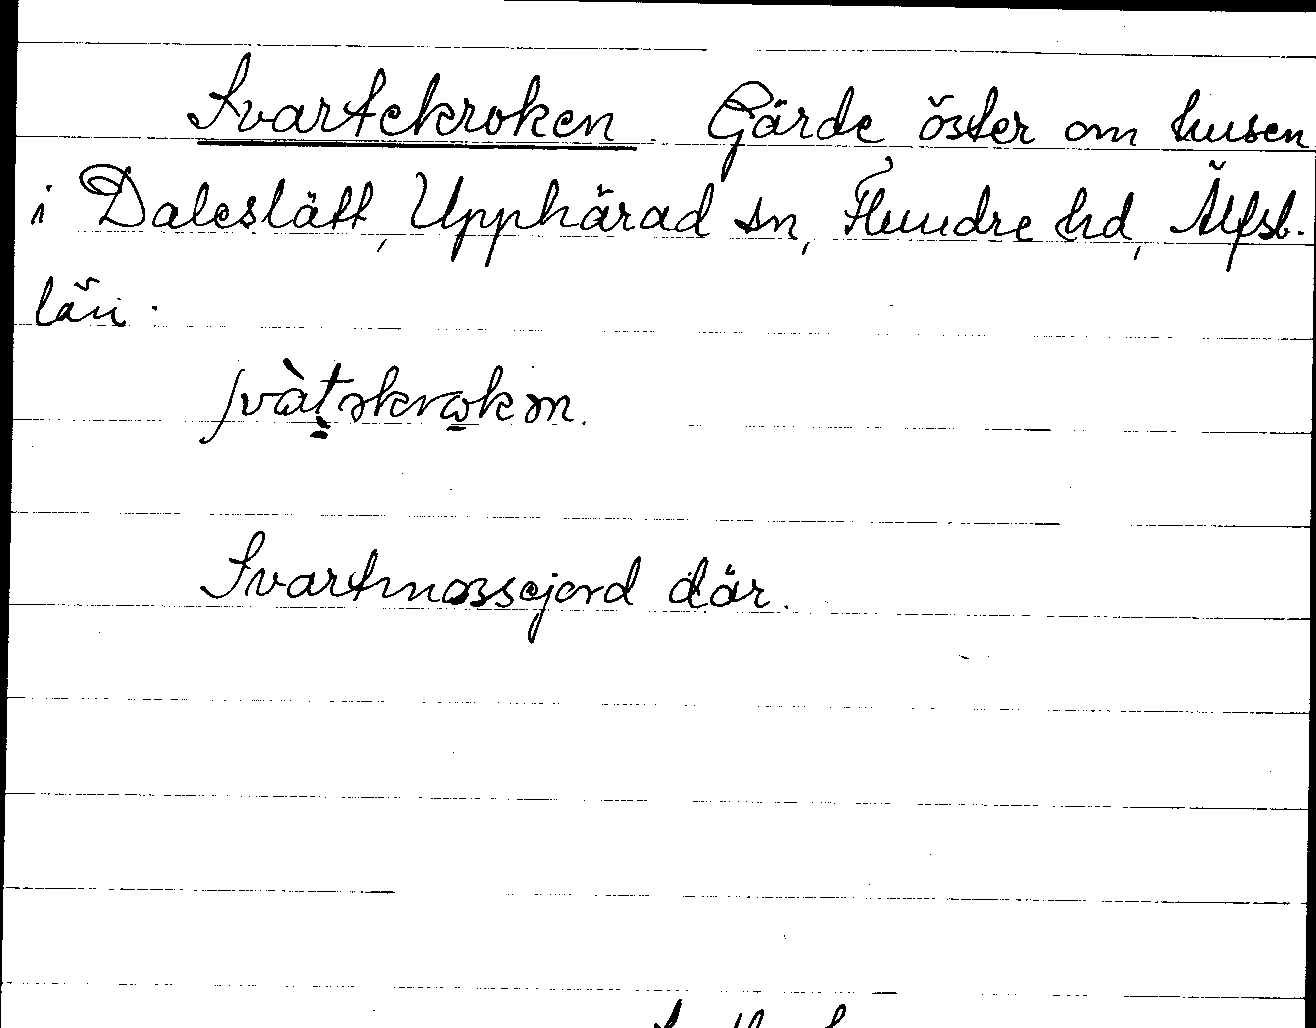 Svartekroken. Gärde öster om husen
i Daleslätt, Upphärad sn, Flundre hd, Älfsb.
län.
Svartmossejord där.